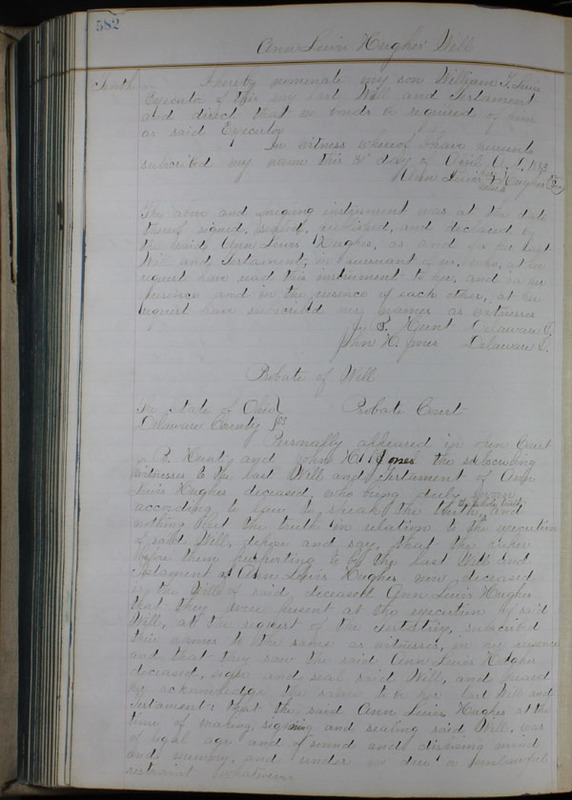 582
Ann Lewis Hughes' Will
Tenth I hereby nominate my son William T. Lewis
Executor of this my last Will and Testament
and direct that no bonds be required of him
as said Executor
In witness whereof I have hereunto
subscribed my name this day of April A.D.
Ann Lewis Hughes
The above and foregoing instrument was at the date
thereof signed, sealed, published, and declared by
the said Ann Lewis Hughes, as and for her last
Will and Testament, in presence of us, who, at her
request have read this instrument to her, and in her
presence and in the presence of each other, at her
request have subscribed our names as witnesses
B. Hunt Delaware O.
John H. Jones Delaware O.
Probate of Will
The State of Ohio Probate Court
Delaware County ss
Personally appeared in open Court
B. Hunt and John H. Jones the subscribing
witnesses to the last Will and Testament of Ann
Lewis Hughes deceased, who being duly sworn
according to law to speak the truth, the whole truth and
nothing but the truth in relation to the execution
of said Will, depose and say, that the paper
before them purporting to be the last Will and
Testament of Ann Lewis Hughes, now deceased
is the Will of said deceased Ann Lewis Hughes
that they were present at the execution of said
Will, at the request of the testatrix, subscribed
their names to the same as witnesses, in her presence
and that they saw the said Ann Lewis Hughes
deceased, sign and seal said Will, and heard
her acknowledge the same to be her last Will and
Testament: that the said Ann Lewis Hughes at the
time of making, signing and sealing said Will, was
of legal age and of sound and disposing mind
and memory, and under no unlawful
restraint whatsoever